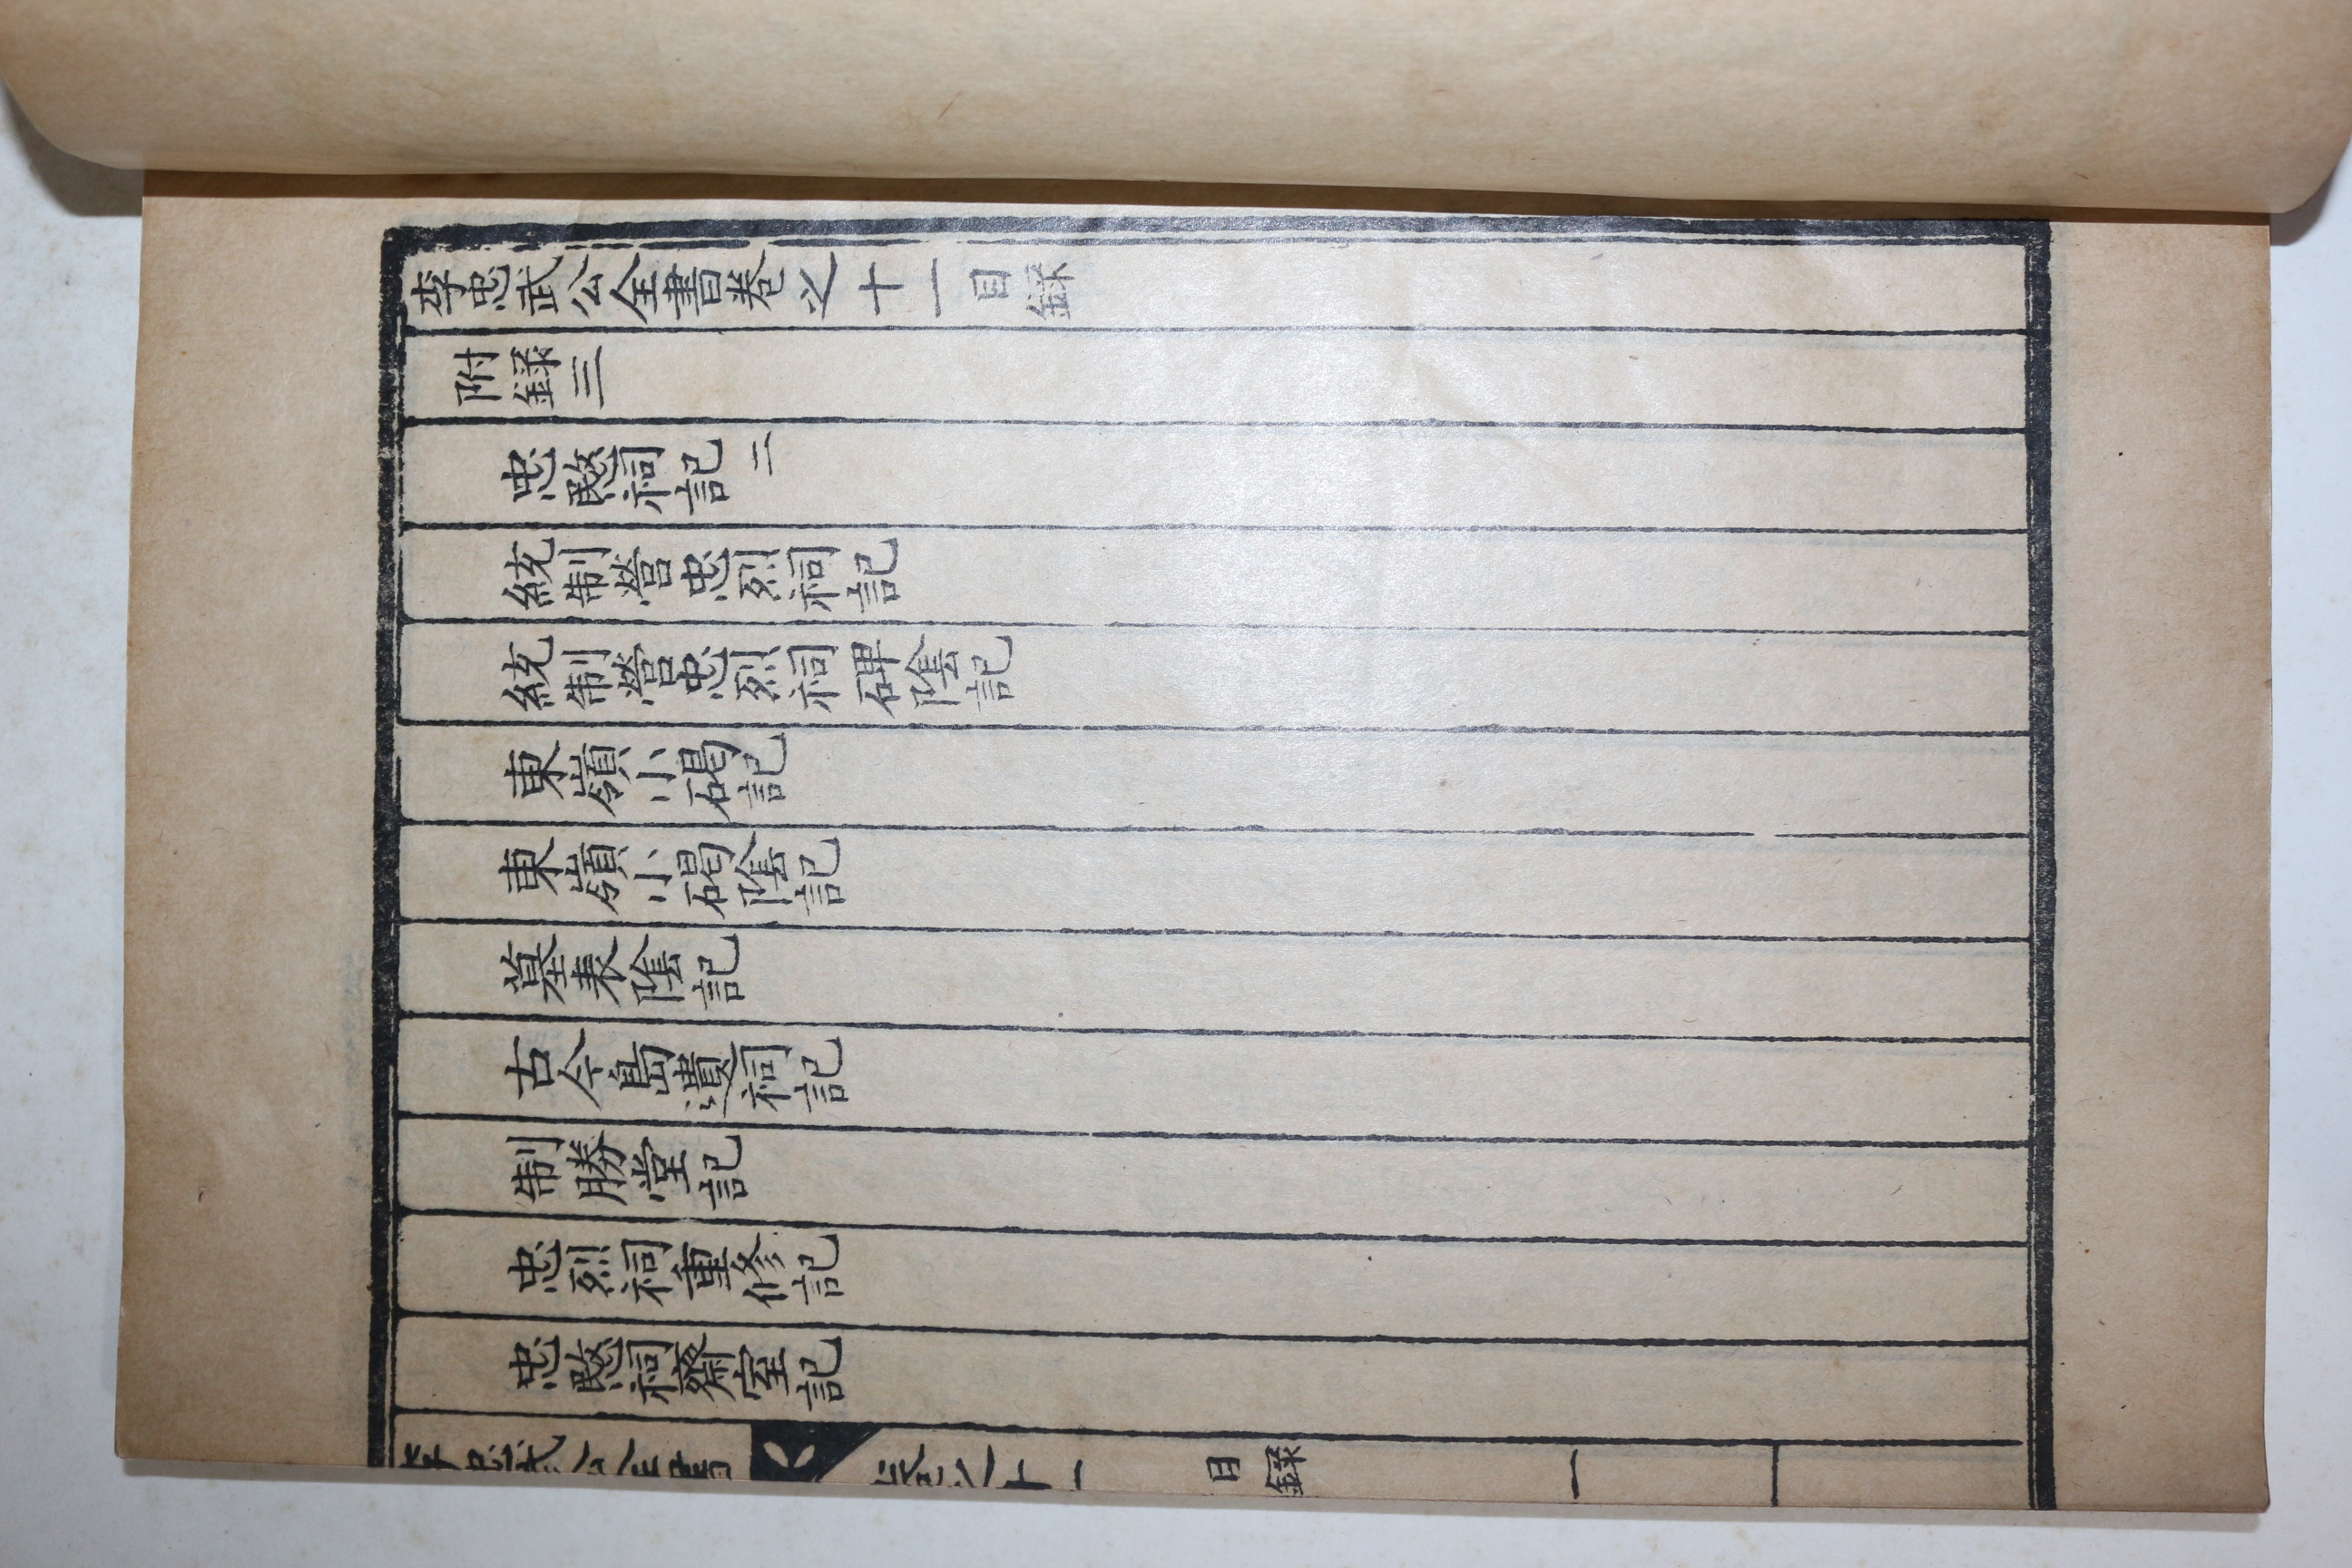 李忠武公全書卷之十一目錄
附錄三
忠愍祠記 二
統制營忠烈祠記
統制營忠烈祠碑陰記
東嶺小碣記
東嶺小碣陰記
墓表陰記
古今島遺祠記
制勝堂記
忠烈祠重修記
忠愍祠齋室記
李忠武公全書 卷之十一 目錄 一